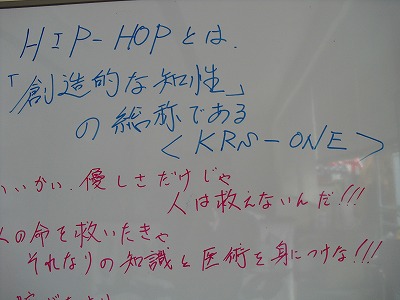 HIP-HOPとは.
「創造的な知性」
の総称である
<KRS-ONE>
いいかい.優しさだけじゃ
人は救えないんだ!!!
人の命を救いたきゃ
それなりの知識と医術を身につけな!!!